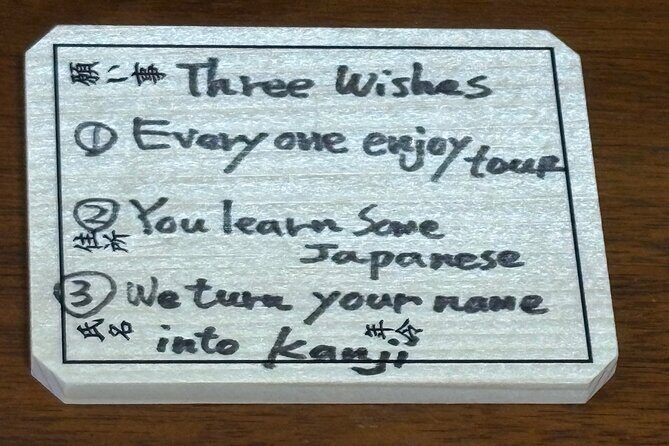 願い事 Three Wishes
① Every one enjoy tour
② You learn Some
住所 Japanese
③ We turn your name
氏名 into Kanji 年令